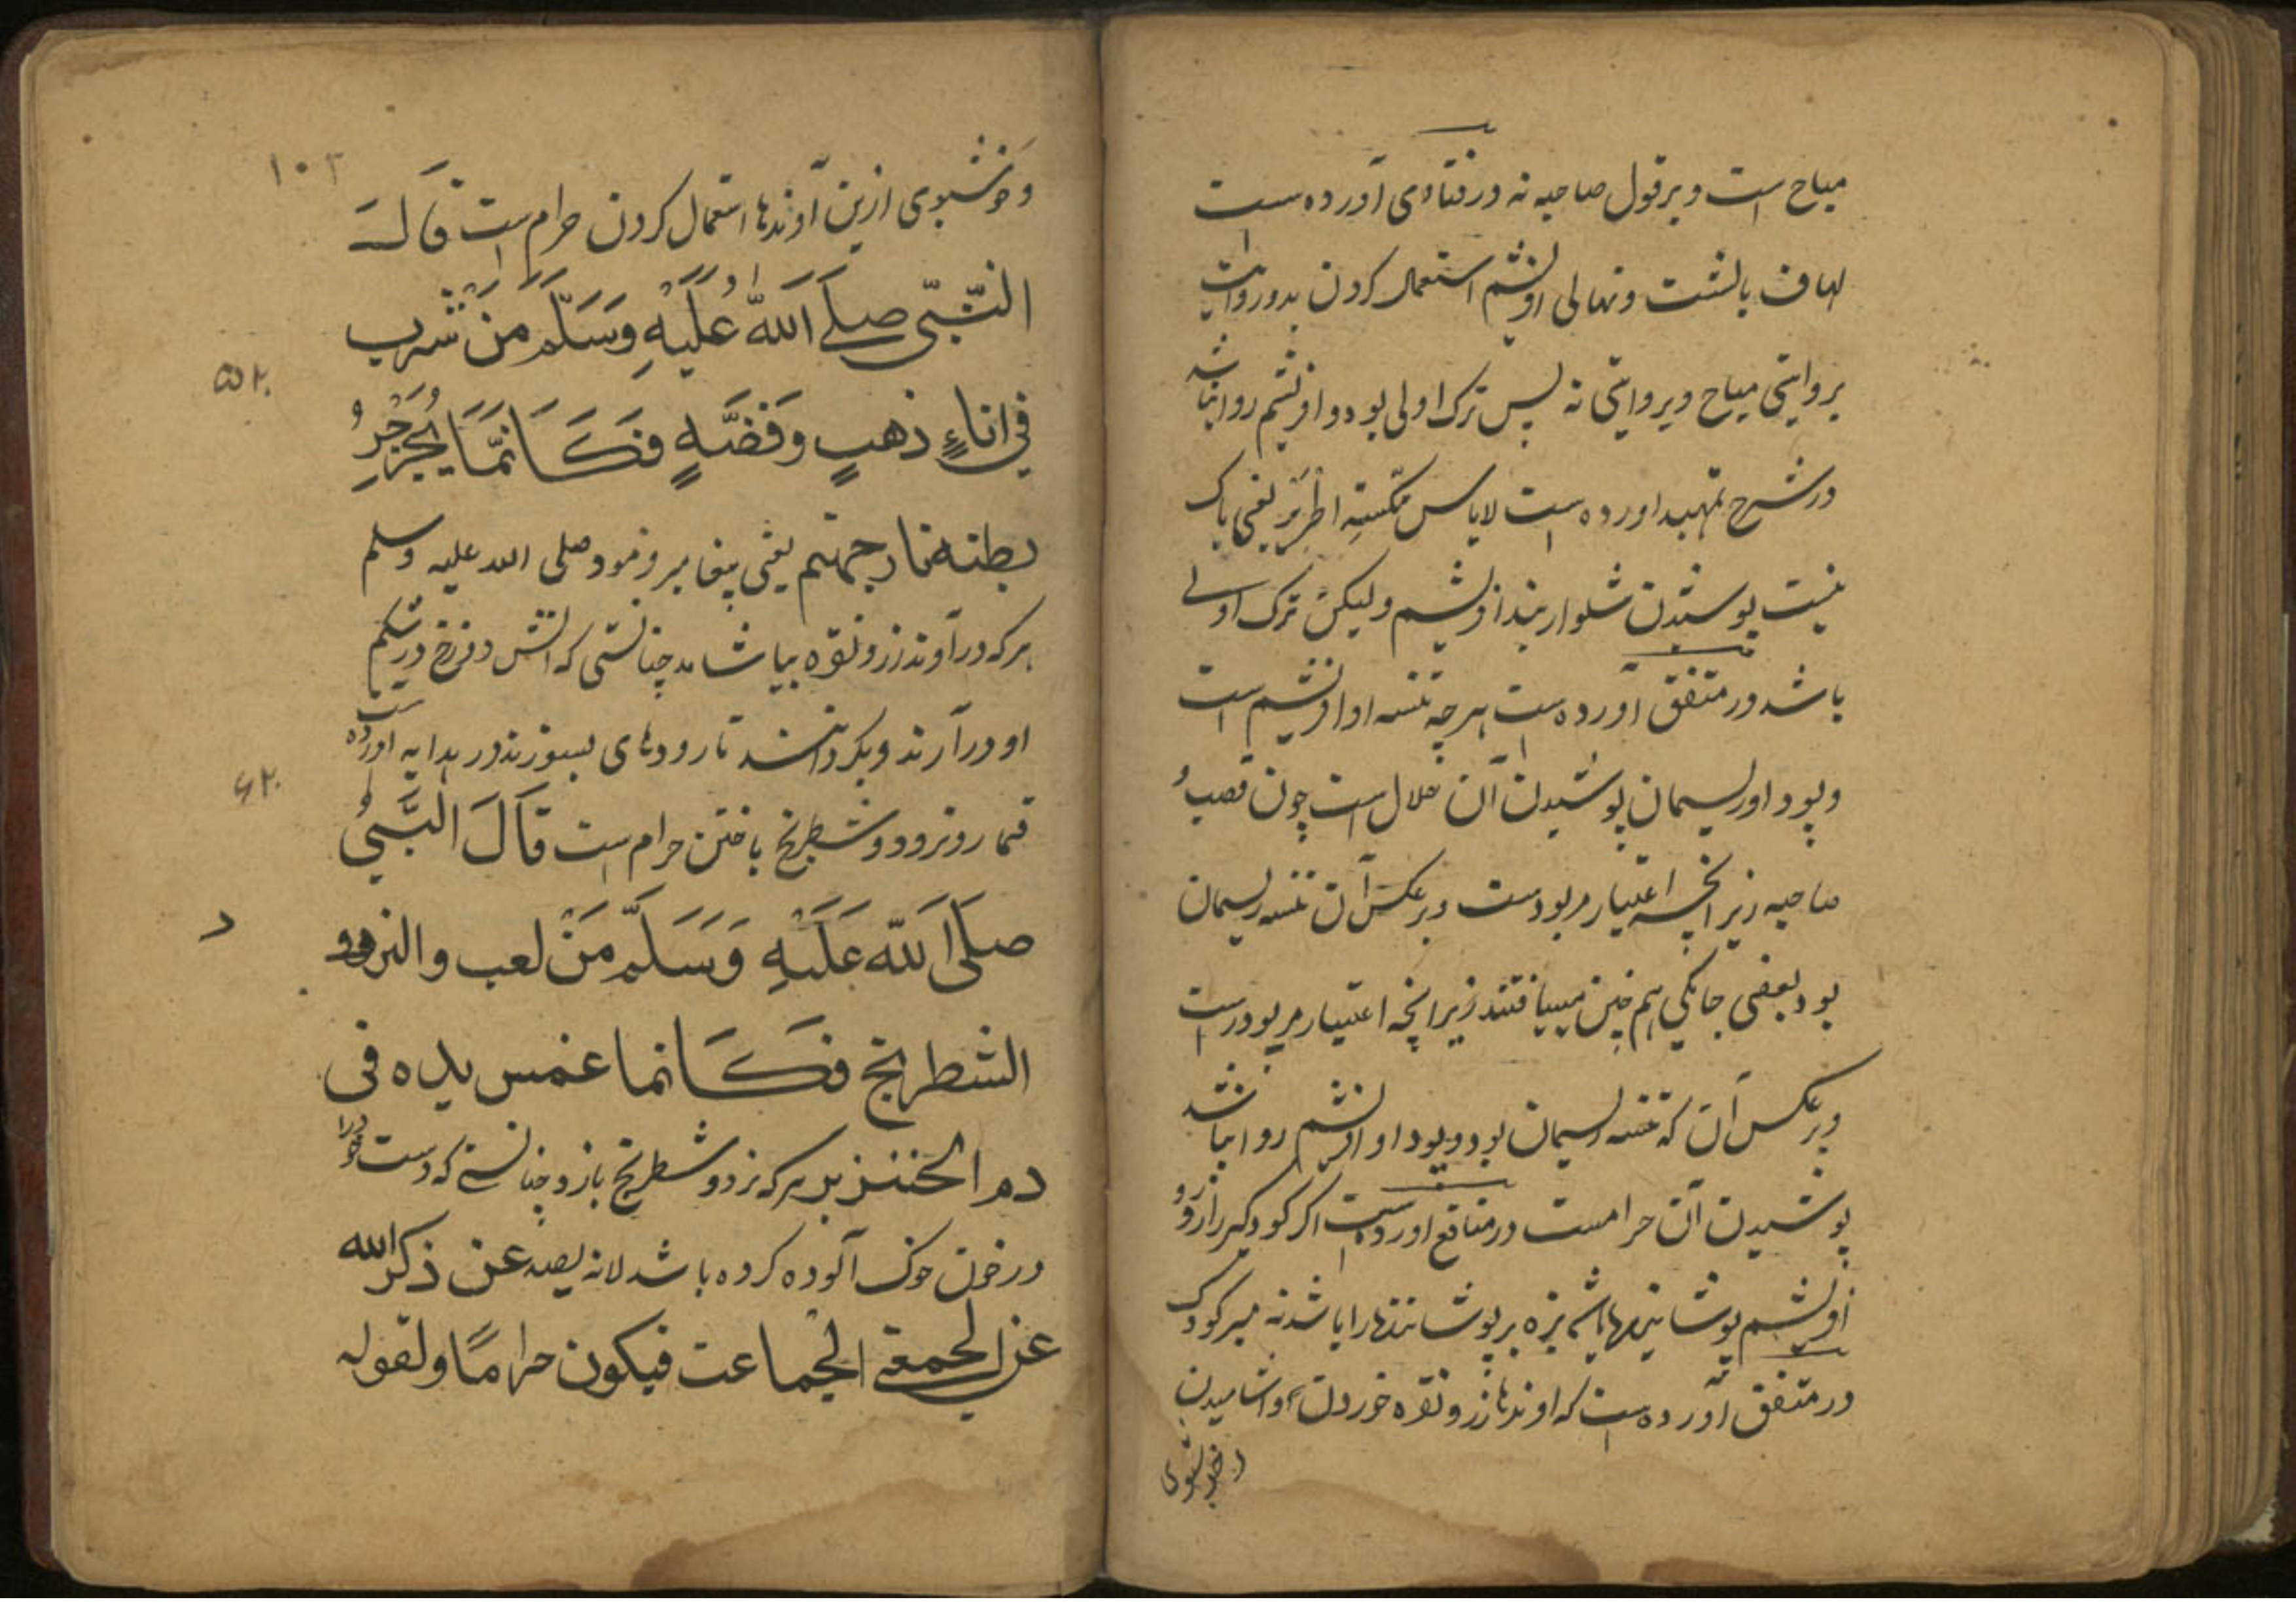 مباح است و بر قول صاحبه نه در فتاوی آورده است
لحاف بالشت و نهالی ابریشم استعمال کردن بدو روایت
بروایتی مباح و بروایتی نه پس ترک اولی بود و ابریشم روا نباشد
در شرح تمهید اورده است لاباس یعنی باک
نیست پوشیدن شلوار بند ابریشم ولیکن ترک اولی
باشد در متفق آورده است هرچه تنسه او ابریشم است
و پود او ریسمان پوشیدن آن حلال است چون قصب و
صاحبه زیرانچه اعتبار مر پود است و برعکس آن تنسه ریسمان
بود بعضی هم چنین زیرانچه اعتبار مر پود راست
و برعکس آن که تنسه ریسمان بود و پود او ابریشم روا نباشد
پوشیدن آن حرامست در منافع اورده است اگر کودک را زر و
ابریشم پوشانند بزه بر پوشاننده را باشد نه بر کودک
در متفق آورده است که اوندهای زر و نقره خوردن و اشامیدن
و خوشبوی
۱۰۲
و خوشبوی ازین آوندها استعمال کردن حرام است قال
النَّبِيّ صلى الله عَلَيْهِ وَسَلَّم مَنْ شَرِب
في اناءٍ ذهبٍ وفضَّهٍ فَكَانَّمَا يُجَرْجِرُ
بطنه نار جهنم یعنی پیغامبر فرمود صلی الله علیه وسلم
هر که در آوند زر و نقره بیاشامد چنانستی که اتش دوزخ در شکم
او در آرند و بگردانند تا رودهای بسوزند در هدایه اورده است
قمار و نرد و شطرنج باختن حرام است قَالَ النَّبيُّ
صلى الله عَلَيْهِ وَسَلَّم مَنْ لعب والنرد و
الشطرنج فَكَانما غمس يده في
دم الخنزیر هر که نرد و شطرنج بازد چنانستی که دست خود را
در خون خوک آلوده کرده باشد لانه یصد عن ذکر الله
عن الجمعة الجماعت فيكون حراماً ولقوله